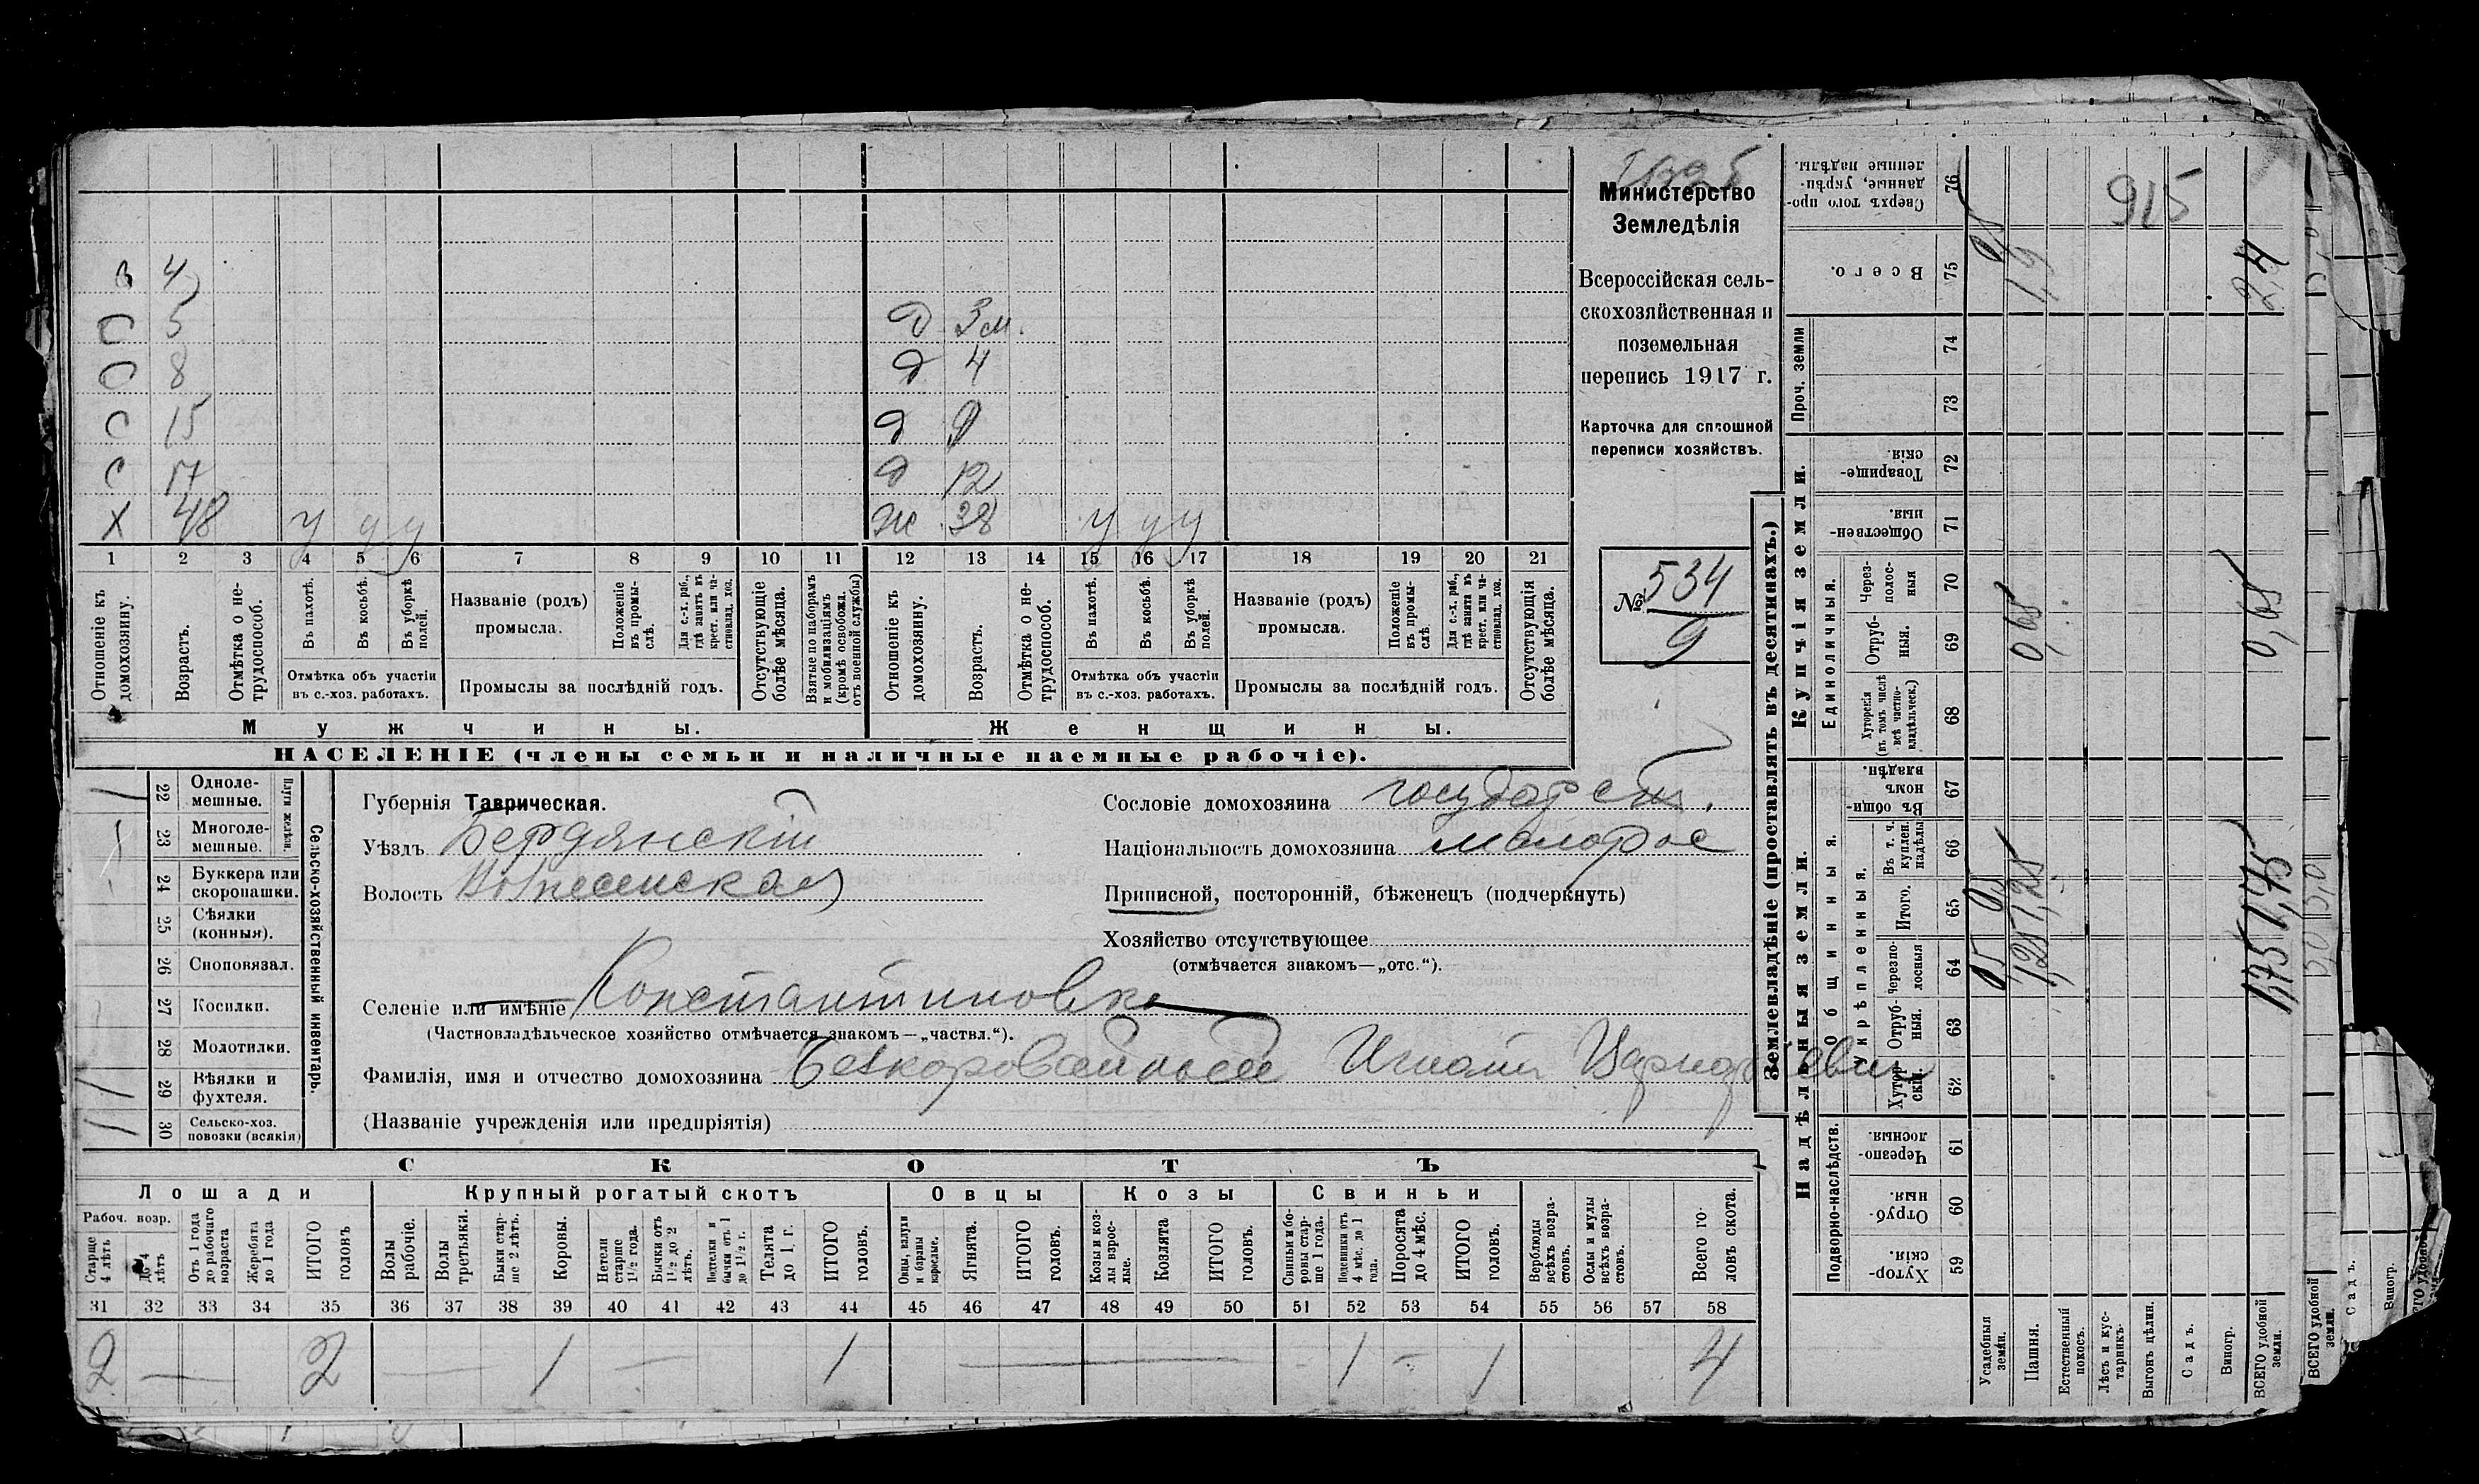 З 4
С 5 Д 3 м.
С 8 Д 4
С 15 Д 9
С 17 Д 12
Х 48 у у у Ж 38 у у у
1 2 3 4 5 6 7 8 9 10 11 12 13 14 15 16 17 18 19 20 21
Отношеніе къ домохозяину.
Возрастъ.
Отмѣтка о нетрудоспособ.
Въ пахотѣ.
Въ косьбѣ.
Въ уборкѣ полей.
Отмѣтка объ участіи
въ с.-хоз. работахъ.
Названіе (родъ)
промысла.
Положеніе въ промыслѣ.
Для с.-х. раб., гдѣ занятъ въ крест. или частновлад. хоз.
Промыслы за послѣдній годъ.
Отсутствующіе болѣе мѣсяца.
Взятые по наборамъ и мобилизаціямъ (кромѣ освобожд. отъ военной службы)
Отношеніе къ домохозяину.
Возрастъ.
Отмѣтка о нетрудоспособ.
Въ пахотѣ.
Въ косьбѣ.
Въ уборкѣ полей.
Отмѣтка объ участіи
въ с.-хоз. работахъ.
Названіе (родъ)
промысла.
Положеніе въ промыслѣ.
Для с.-х. раб., гдѣ занята въ крест. или частновлад. хоз.
Промыслы за послѣдній годъ.
Отсутствующія болѣе мѣсяца.
Мужчины. Женщины.
НАСЕЛЕНІЕ (члены семьи и наличные наемные рабочіе).
Министерство
Земледѣлія
Всероссійская сель-
скохозяйственная и
поземельная
перепись 1917 г.
Карточка для сплошной
переписи хозяйствъ.
№ 534
9
Сельско-хозяйственный инвентарь.
Плуги желѣзн.
22 Одноле-
мешные.
23 Многоле-
мешные.
24 Буккера или
скоропашки.
25 Сѣялки
(конныя).
26 Сноповязал.
27 Косилки.
28 Молотилки.
29 Вѣялки и
фухтеля.
30 Сельско-хоз.
повозки (всякія)
Губернія Таврическая.
Уѣздъ Бердянскій
Волость Вознесенская
Сословіе домохозяина государст.
Національность домохозяина малорос
Приписной, посторонній, бѣженецъ (подчеркнуть)
Хозяйство отсутствующее
(отмѣчается знакомъ—„отс.“).
Селеніе или имѣніе Константиновка
(Частновладѣльческое хозяйство отмѣчается знакомъ—„частвл.“).
Фамилія, имя и отчество домохозяина Безкоровайный Игнатъ
(Названіе учрежденія или предпріятія)
СКОТЪ
Лошади Крупный рогатый скотъ Овцы Козы Свиньи
Рабоч. возр.
Старше 4 лѣтъ
До 4 лѣтъ
Отъ 1 года до рабочаго возраста
Жеребята до 1 года
ИТОГО головъ
Волы рабочіе.
Волы третьяки.
Быки старше 2 лѣтъ.
Коровы.
Нетели старше 1½ года.
Бычки отъ 1½ до 2 лѣтъ.
Подтелки и бычки отъ 1 до 1½ г.
Телята до 1 г.
ИТОГО головъ.
Овцы, валухи и бараны взрослые.
Ягнята.
ИТОГО головъ.
Козы и козлы взрослые.
Козлята
ИТОГО головъ.
Свиньи и боровы старше 1 года.
Подсвинки отъ 4 мѣс. до 1 года.
Поросята до 4 мѣс.
ИТОГО головъ.
Верблюды всѣхъ возрастовъ.
Ослы и мулы всѣхъ возрастовъ.
Всего головъ скота.
31 32 33 34 35 36 37 38 39 40 41 42 43 44 45 46 47 48 49 50 51 52 53 54 55 56 57 58
2 — 2 — 1 — 1 — 1 — 1 4
Землевладѣніе (проставлять въ десятинахъ.)
Надѣльныя земли. Купчія земли. Проч. земли
Подворно-наслѣдств.
Общинныя.
Укрѣпленныя.
Единоличныя.
Хуторскія 59
Отрубныя 60
Черезполосныя. 61
Хуторскія. 62
Отрубныя. 63
Черезполосныя 64
Итого. 65
Въ т. ч. куплен. надѣлы 66
Въ общинномъ владѣн. 67
Хуторскія (въ томъ числѣ всѣ частновладѣльческ.) 68
Отрубныя. 69
Черезполосныя 70
Общественныя. 71
Товарищескія. 72
73
74
Всего. 75
Сверхъ того проданные, укрѣпленные надѣлы. 76
Усадебныя земли.
Пашня. 1,25 1,25 0,65 1,9
Естественный покосъ.
Лѣсъ и кустарникъ.
Выгонъ цѣлин.
Садъ.
Виногр.
ВСЕГО удобной земли. 1,75 1,75 0,65 2,4
915
ВСЕГО удобной земли.
Садъ.
Виногр.